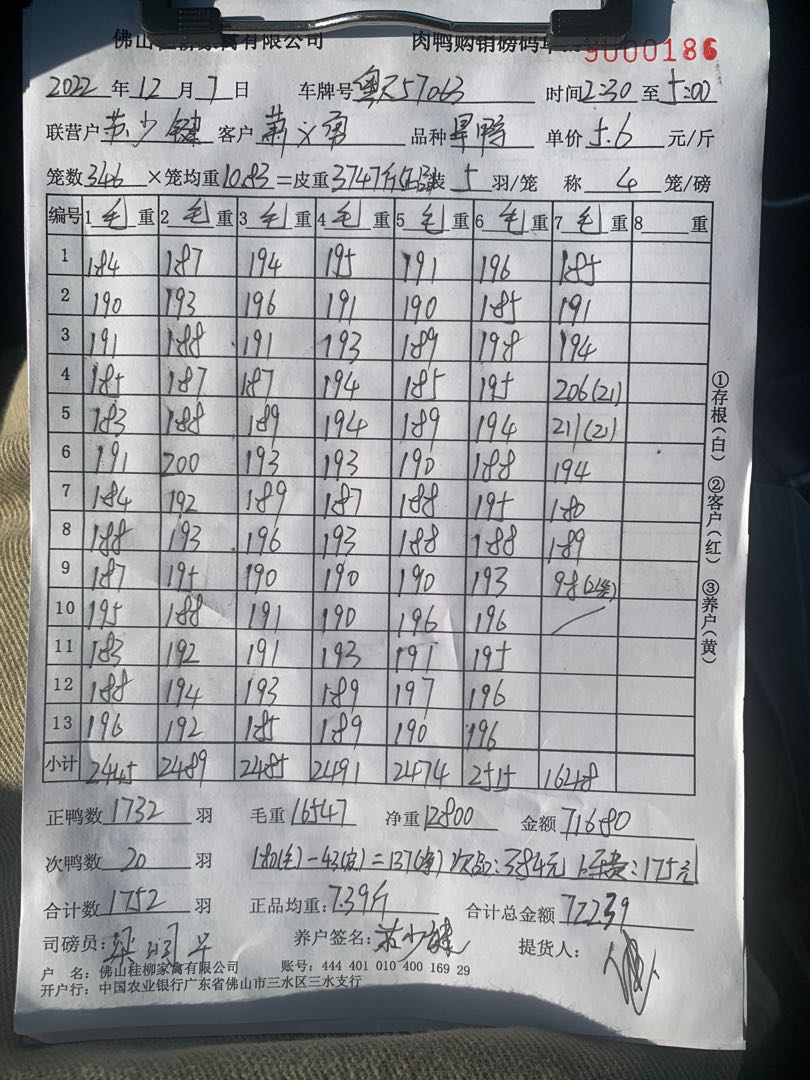 佛山桂柳家禽有限公司 肉鸭购销磅码单 9000186
2022 年 12 月 7 日 车牌号 57063 时间 2:30 至 5:00
联营户 苏少键 客户 萧义 品种 旱鸭 单价 5.6 元/斤
笼数 346 ×笼均重 10.83 =皮重 3747斤 装 5 羽/笼 称 4 笼/磅
编号 1 毛 重 2 毛 重 3 毛 重 4 毛 重 5 毛 重 6 毛 重 7 毛 重 8 重
1 184 187 194 195 191 196 185
2 190 193 196 191 190 185 191
3 191 188 191 193 189 198 194
4 185 187 187 194 185 195 206(21)
5 183 188 189 194 189 194 211(21)
6 191 200 193 193 190 188 194
7 184 192 189 187 188 195 180
8 188 193 196 193 188 188 189
9 187 195 190 190 190 193 98(2笼)
10 195 188 191 190 196 196
11 183 192 191 193 191 195
12 188 194 193 189 197 196
13 196 192 185 189 190 196
小计 2445 2489 2485 2491 2474 2515 1648
正鸭数 1732 羽 毛重 16547 净重 12800 金额 71680
次鸭数 20 羽 180(毛)-43(皮)=137(净) 次品:384元 下车费:175元
合计数 1752 羽 正品均重: 7.39斤 合计总金额 72239
司磅员: 梁 养户签名: 苏少键 提货人:
户 名: 佛山桂柳家禽有限公司 账号: 444 401 010 400 169 29
开户行: 中国农业银行广东省佛山市三水区三水支行
①存根(白) ②客户(红) ③养户(黄)